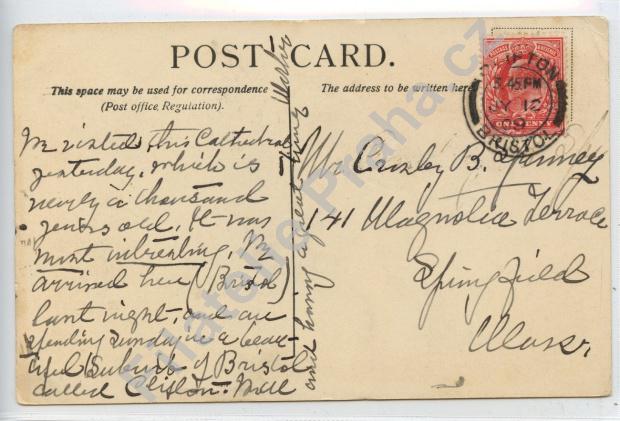 POST CARD.
This space may be used for correspondence
(Post office, Regulation).
The address to be written here
We visited this Cathedral
yesterday, which is
nearly a thousand
years old. It was
most interesting. We
arrived here (Bristol)
last night, and are
spending Sunday in a beau-
tiful Suburb of Bristol
called Clifton. Well
and having a great time
Mr B. Jenney
141 Magnolia Terrace
Springfield
Mass.
CLIFTON
3.45 PM
JY 12
BRISTOL
ONE PENNY
Filatelie Praha.cz